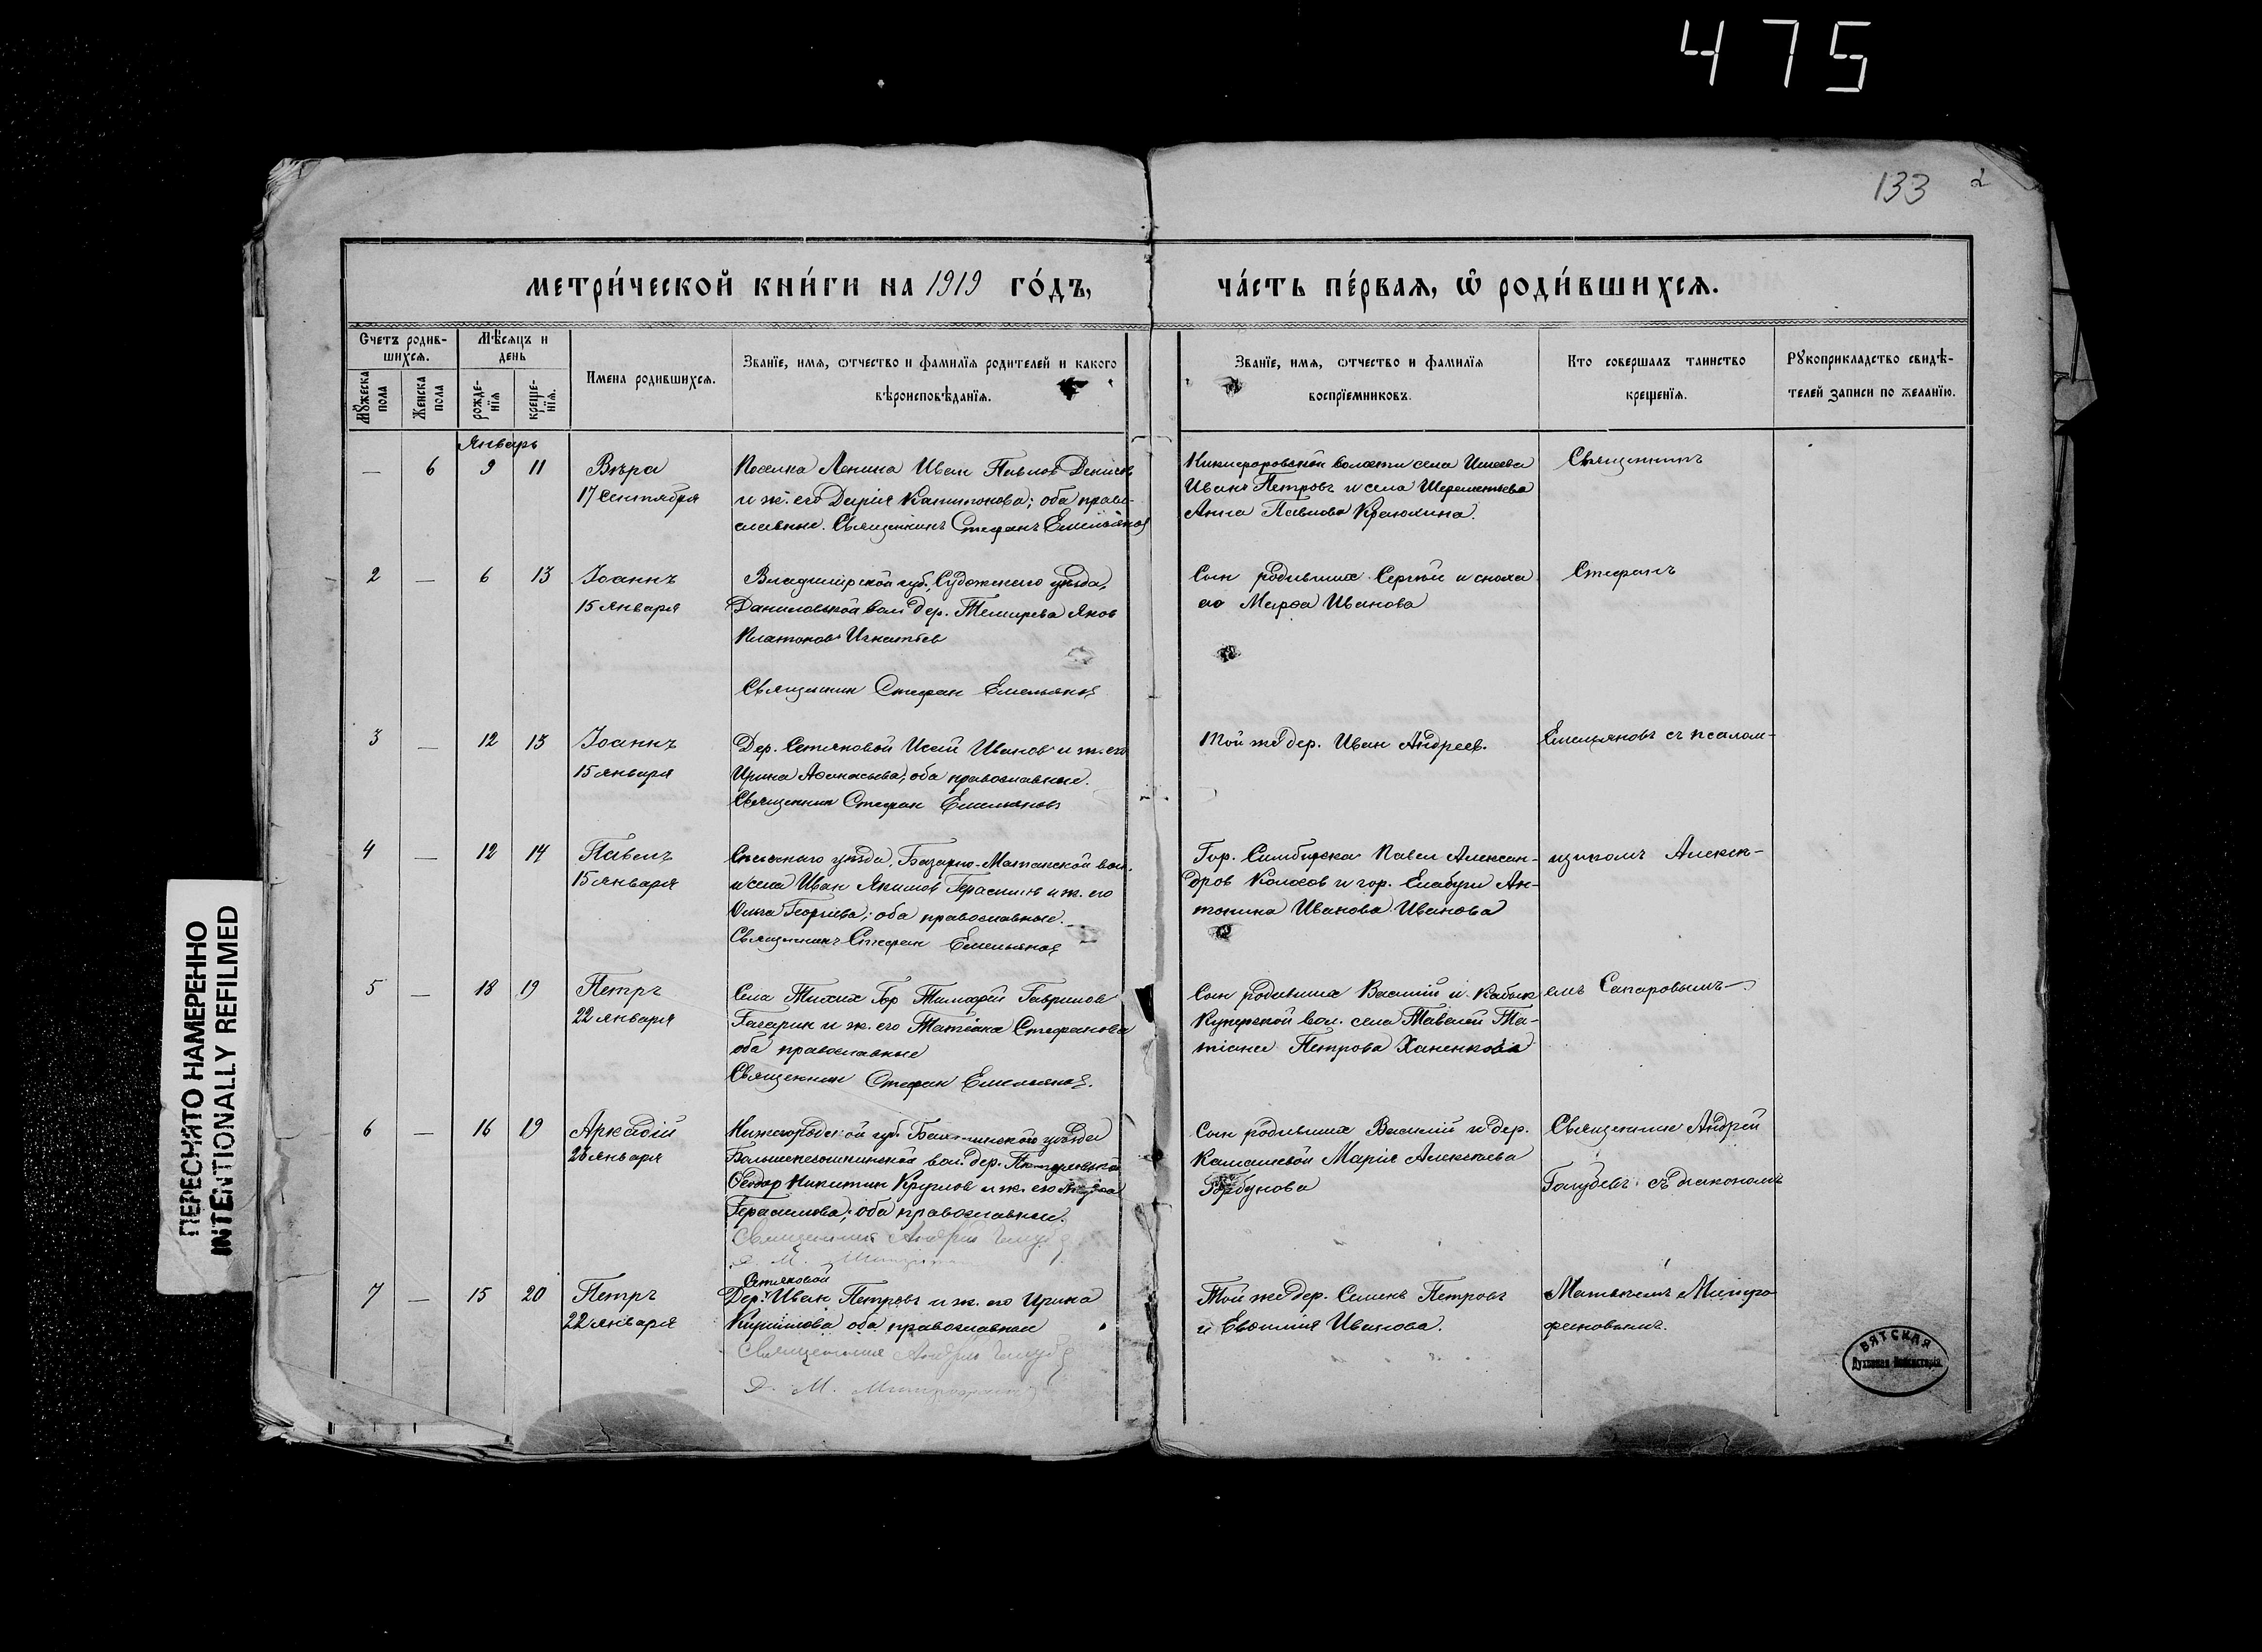 475
133
2
ПЕРЕСНЯТО НАМЕРЕННО
INTENTIONALLY REFILMED
МЕТРИ́ЧЕСКОЙ КНИ́ГИ НА 1919 ГО́ДЪ,
ЧА́СТЬ ПЕ́РВАЯ, Ѡ РОДИ́ВШИХСЯ.
Счетъ родив-
шихся.
Мужеска
пола
Женска
пола
Мѣсяцъ и
день
рожде-
нія
креще-
нія.
Имена родившихся.
Званіе, имя, отчество и фамилія родителей и какого
вѣроисповѣданія.
Званіе, имя, отчество и фамилія
воспріемниковъ.
Кто совершалъ таинство
крещенія.
Рукоприкладство свидѣ-
телей записи по желанію.
Январь
— 6 9 11
Вѣра
17 сентября
Поселка Ленина Иван Павлов
и ж. его Дарія Капитонова; оба право-
славные. Священникъ Стефанъ Емельянов
Никифоровской волости села
Иванъ Петровъ и села Шереметьева
Анна Павлова
Священникъ
2 — 6 13
Іоаннъ
15 января
Владимірской губ., Судожскаго уѣзда,
Даниловской вол. дер. Яков
Платонов Игнатьев
Священник Стефан Емельянов
Сын родивших Сергѣй и сноха
его Марѳа Иванова
Стефанъ
3 — 12 13
Іоаннъ
15 января
Дер. Сетяковой Иван и ж. его
Ирина Аѳанасьева; оба православные.
Священник Стефан Емельяновъ
Той же дер. Иван Андреев.
Емельяновъ съ псалом-
4 — 12 14
Павелъ
15 января
Спасскаго уѣзда, Базарно-Матакской вол.
и села Иван Якимов Герасимов и ж. его
Ольга Георгіева; оба православные.
Священникъ Стефан Емельянов
Гор. Симбирска Павел Алексан-
дров и гор. Елабуги Ан-
тонина Иванова Иванова
щикомъ Алексѣ-
5 — 18 19
Петръ
22 января
Села Тихих Гор Тимофей Гаврилов
Гагарин и ж. его Татіана Стефанова
оба православные
Священник Стефан Емельянов.
Сын родивших Василій и Кабык
Куперской вол. села Тавелей Та-
тіана Петрова Ханенкова
емъ Сапаровымъ—
6 — 16 19
Аркадій
26 января
Нижегородской губ. уѣзда
вол. дер.
Ѳеодор Никитин Круглов и ж. его
Герасимова; оба православные.
Священник Андрей Голубев
Сын родивших Василій и дер.
Камашевой Марія Алексѣева
Горбунова
Священник Андрей
Голубевъ съ діакономъ
7 — 15 20
Петръ
22 января
Сетяковой
Дер. Иван Петровъ и ж. его Ирина
Кириллова оба православные
Священник Андрей Голубев
Д. М. Митрофанов
Той же дер. Семенъ Петровъ
и Евѳимія Иванова.
Матвѣемъ Митро
фановымъ.
ВЯТСКАЯ
Духовная Консисторія